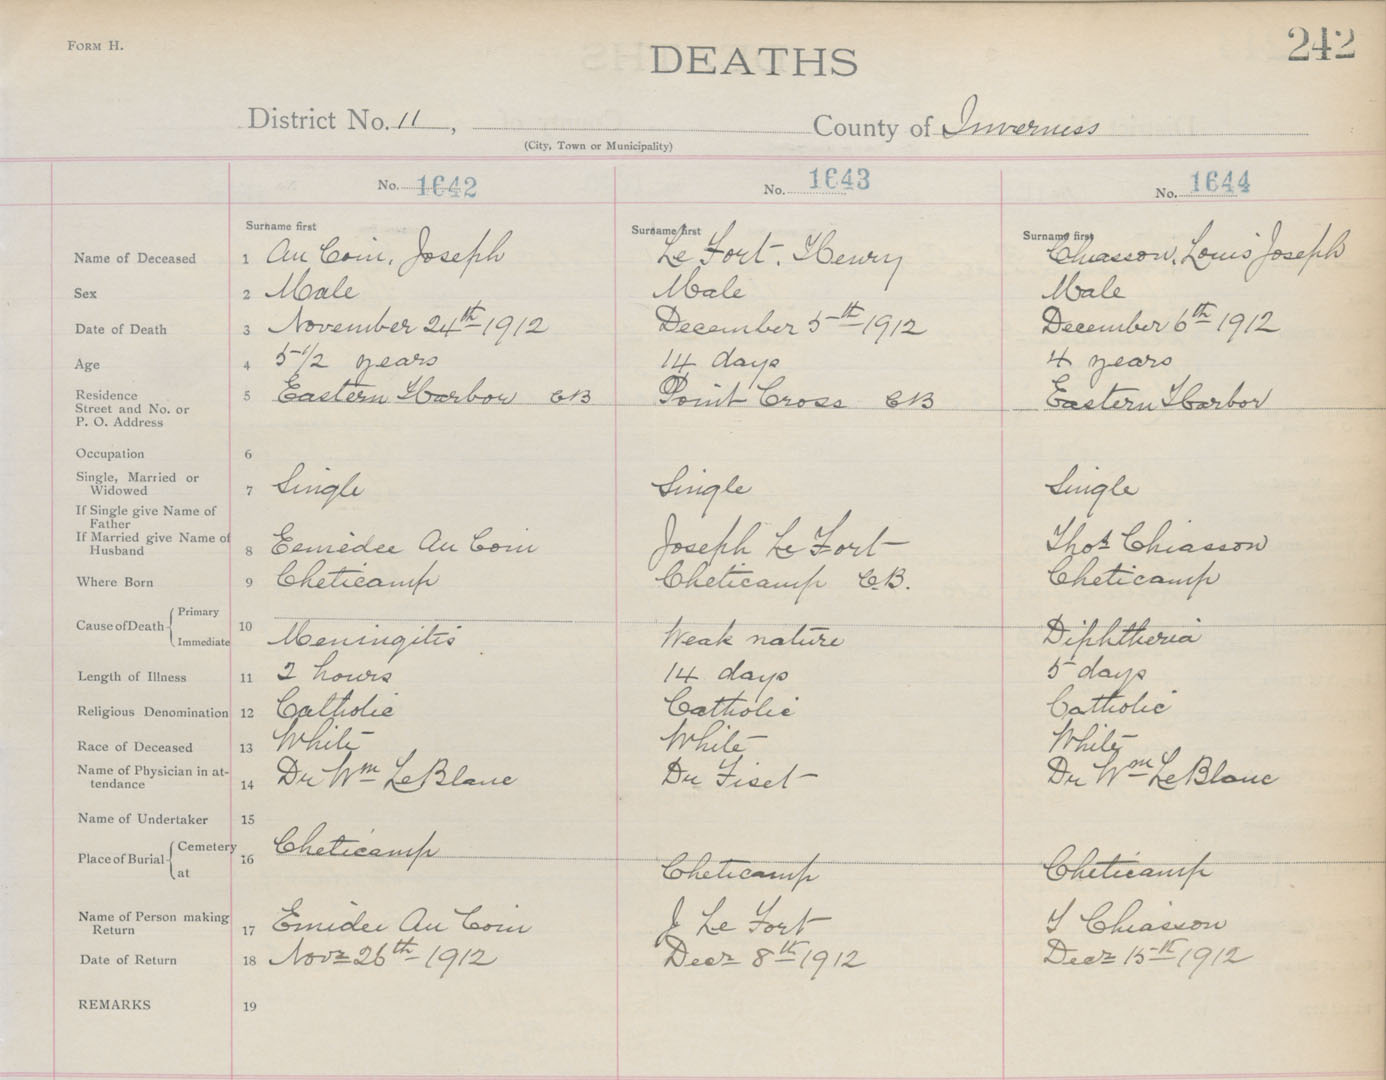 FORM H.
242
DEATHS
District No. 11, County of Inverness
(City, Town or Municipality)
No. 1642 No. 1643 No. 1644
Surname first Surname first Surname first
Name of Deceased 1 Au Coin, Joseph Le Fort, Henry Chiasson, Louis Joseph
Sex 2 Male Male Male
Date of Death 3 November 24th 1912 December 5th 1912 December 6th 1912
Age 4 5 1/2 years 14 days 4 years
Residence 5 Eastern Harbor CB Point Cross CB Eastern Harbor
Street and No. or
P. O. Address
Occupation 6
Single, Married or
Widowed 7 Single Single Single
If Single give Name of
Father
If Married give Name of
Husband 8 Eemédee Au Coin Joseph Le Fort Thos Chiasson
Where Born 9 Cheticamp Cheticamp C.B. Cheticamp
Cause of Death { Primary
10
Immediate Meningitis Weak nature Diphtheria
Length of Illness 11 2 hours 14 days 5 days
Religious Denomination 12 Catholic Catholic Catholic
Race of Deceased 13 White White White
Name of Physician in at-
tendance 14 Dr Wm LeBlanc Dr Fiset Dr Wm LeBlanc
Name of Undertaker 15
Place of Burial { Cemetery 16 Cheticamp Cheticamp Cheticamp
at
Name of Person making
Return 17 Emidee Au Coin J Le Fort T Chiasson
Date of Return 18 Novr 26th 1912 Decr 8th 1912 Decr 15th 1912
REMARKS 19